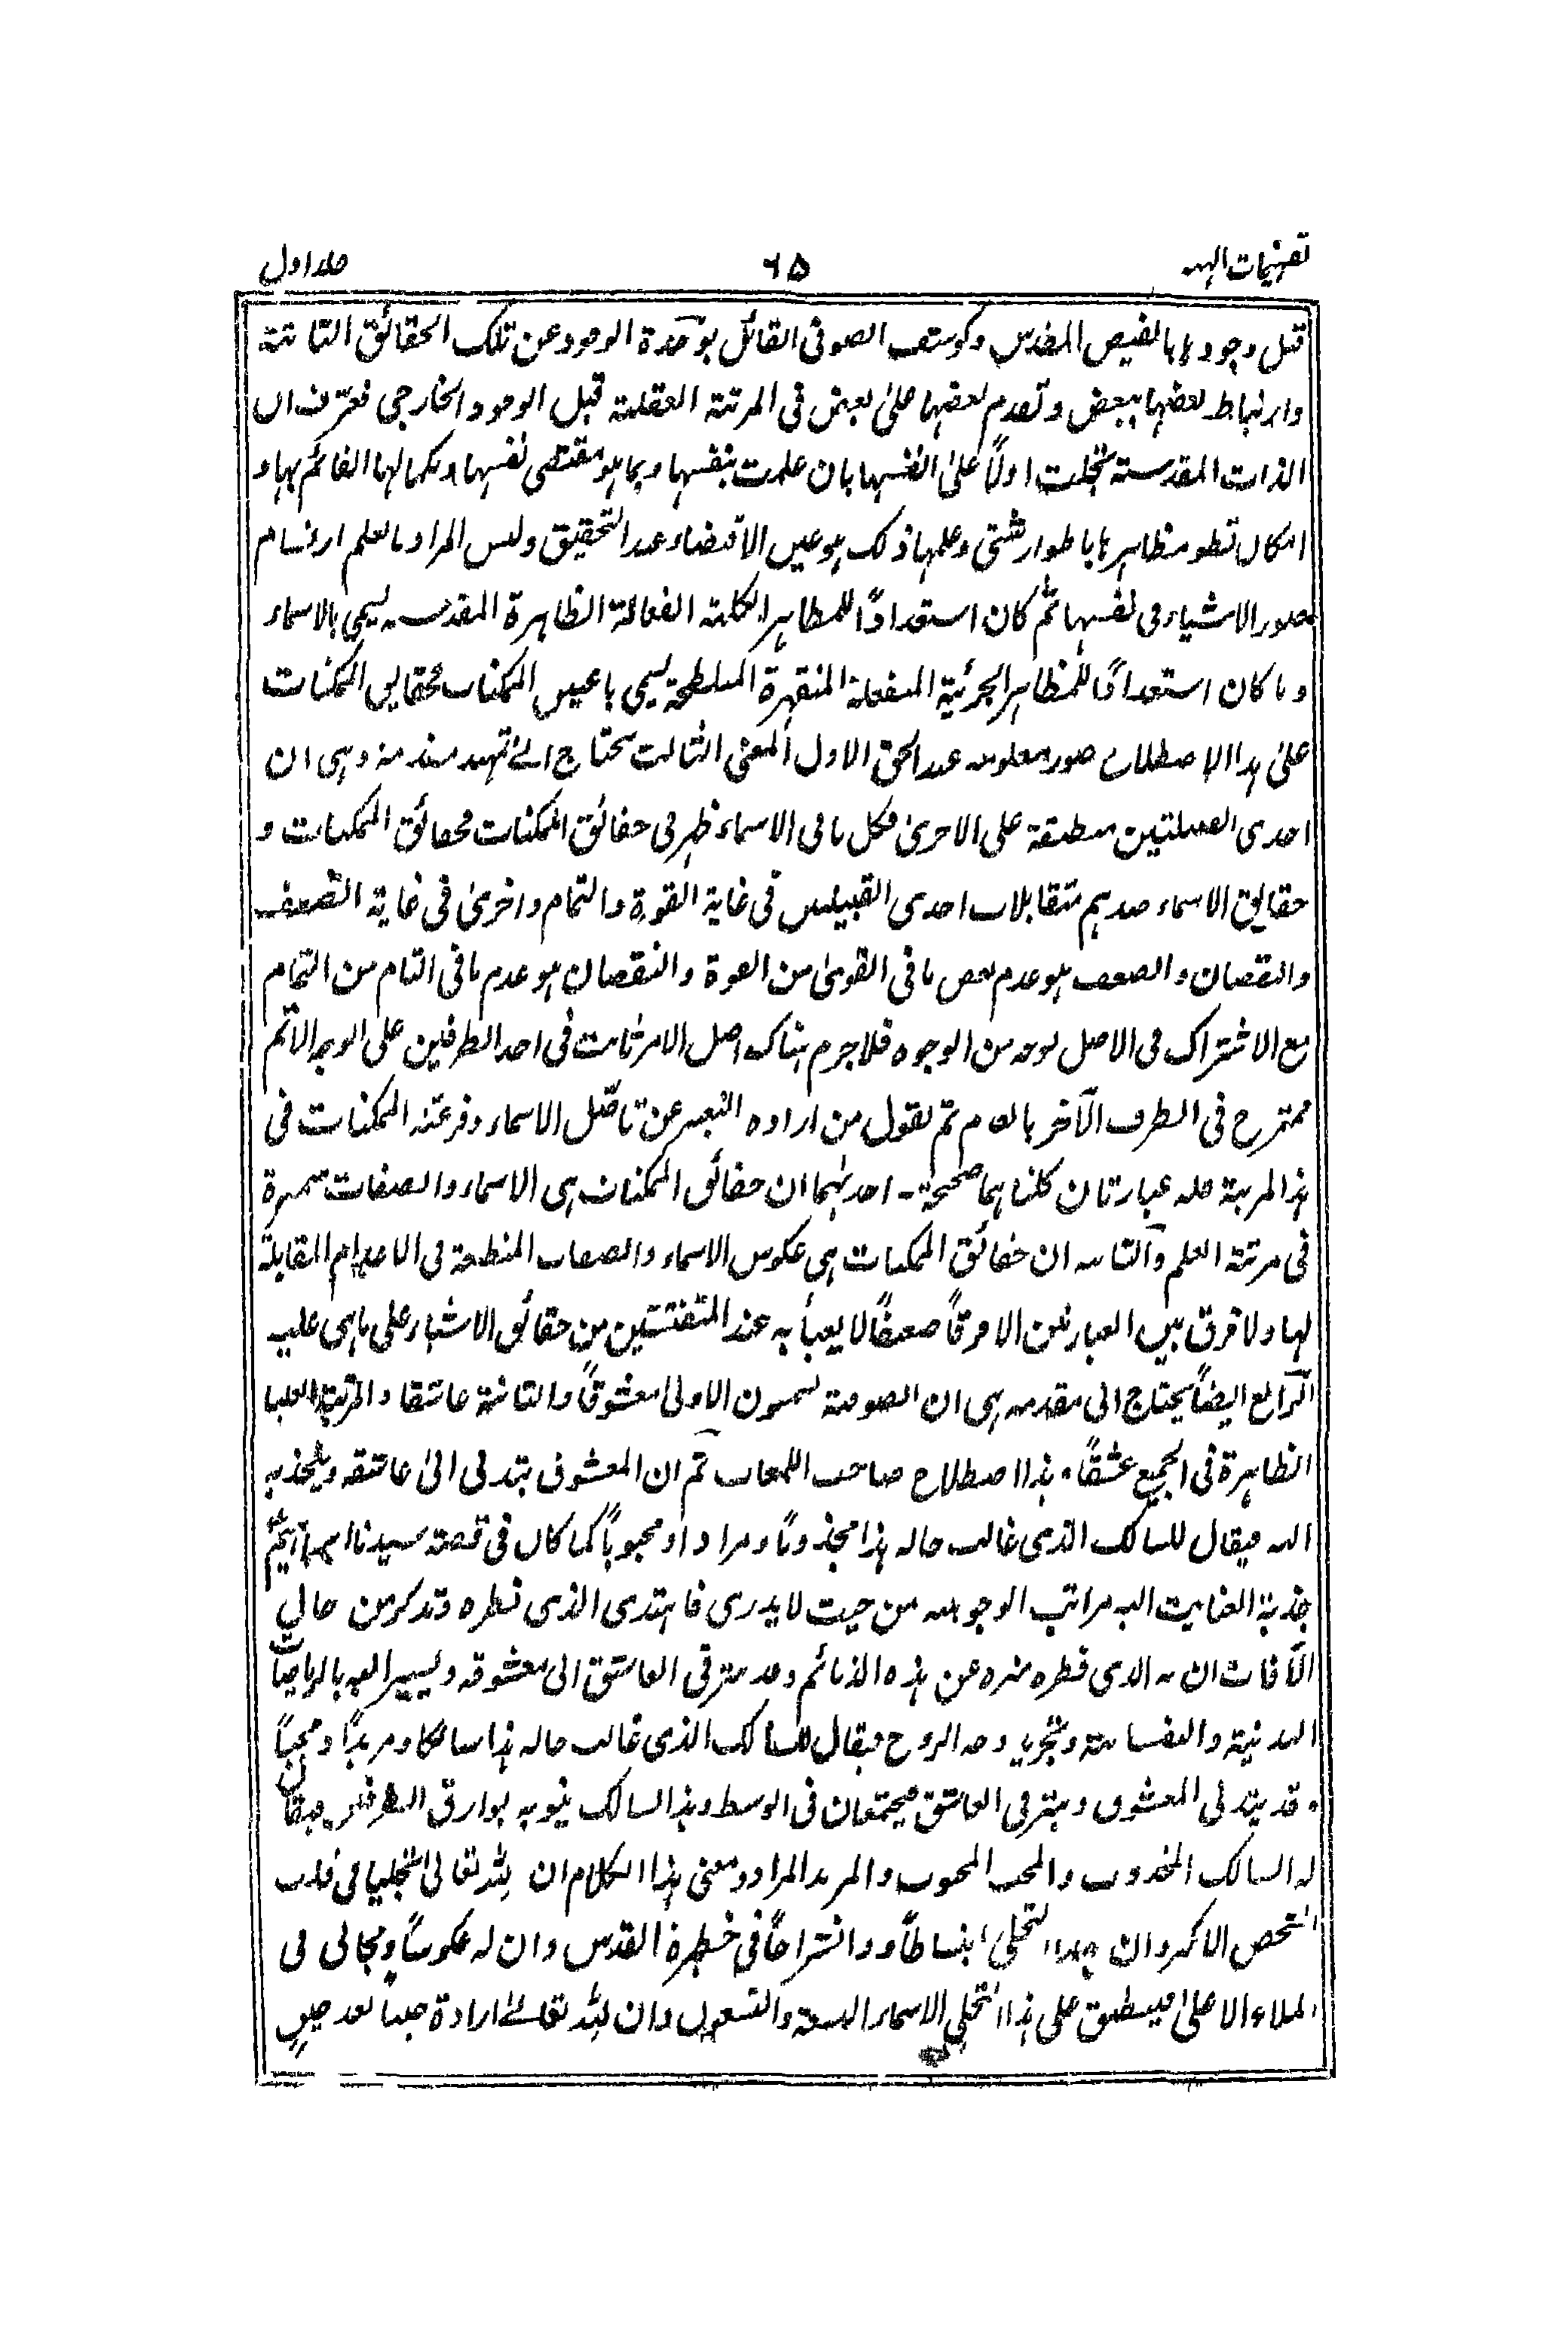 تفہیمات الٰہیہ ٦٥ جلد اول
قبل وجودها بالفيض المقدس وكوشف الصوفى القائل بوحدة الوجود عن تلك الحقائق الثابتة
وارتباط بعضها ببعض وتقدم بعضها على بعض فى المرتبة العقلية قبل الوجود الخارجى فعرف ان
الذات المقدسة تجلت اولًا على انفسها بان علمت بنفسها وبما هو مقتضى نفسها وبكمالها القائم بها و
امكان تطور مظاهرها باطوار شتى وعلمها ذلك هو عين الاقتضاء عند التحقيق وليس المراد بالعلم ارتسام
صور الاشياء فى نفسها ثم كان استعدادًا للمظاهر الكلية الفعالة الظاهرة المقدسة يسمى بالاسماء
وما كان استعدادًا للمظاهر الجزئية المنفعلة المنقهرة يسمى باعيان الممكنات فحقايق الممكنات
على هذا الاصطلاح صور معلومه عند الحق الاول المعنى الثالث يحتاج الى تمهيد مقدمة وهى ان
احدى القبيلتين منطبقة على الاخرى فكل ما فى الاسماء ظهر فى حقائق الممكنات فحقائق الممكنات و
حقايق الاسماء عندهم متقابلات احدى القبيلتين فى غاية القوة والتمام واخرى فى غاية الضعف
والنقصان والضعف هو عدم بعض ما فى القوى من القوة والنقصان هو عدم ما فى التام من التمام
مع الاشتراك فى الاصل بوجه من الوجوه فلا جرم هناك اصل الامر ثابت فى احد الطرفين على الوجه الاتم
ممتزج فى الطرف الآخر بالعدم ثم نقول من اراده التعبير عن تاصل الاسماء وفرعية الممكنات فى
هذا المرتبة فله عبارتان كلتاهما صحيحة۔ احدىهما ان حقائق الممكنات هى الاسماء والصفات متميزة
فى مرتبة العلم والثانيه ان حقائق الممكنات هى عكوس الاسماء والصفات المنطبعة فى الاعدام المقابلة
لها ولا فرق بين العبارتين الا فرقًا ضعيفًا لا يعبأ به عند المتفتشين من حقائق الاشياء على ما هى عليه
الرابع ايضًا يحتاج الى مقدمه هى ان الصوفية يسمون الاولى معشوقًا والثانية عاشقا والمرتبة العليا
الظاهرة فى الجميع عشقًا۔ هذا اصطلاح صاحب اللمعات ثم ان المعشوق يتدلى الى عاشقه ويجذبه
اليه فيقال للسالك الذى غالب حاله هذا مجذوبًا ومرادا ومحبوبًا كما كان فى قصة سيدنا ابراهيم
جذبة العنايت اليه مراتب الوجوبيه من حيث لا يدرى فاهتدى الذى فطره وتذكر من حال
الآفات ان الذى فطره منزه عن هذه الذمائم وقد يترقى العاشق الى معشوقه ويسير اليه بالرياضات
البدنية والنفسانية وتجريد وجه الروح فيقال للسالك الذى غالب حاله هذا سالكا ومريدًا ومحبًا
وقد يتدلى المعشوق ويترقى العاشق فيجتمعان فى الوسط وهذا السالك ينوبه بوارق الطرفين فيقال
له السالك المجذوب والمحب المحبوب والمريد المراد ومعنى هذا الكلام ان لله تعالى تجليا فى قلب
الشخص الاكبر وان لهذا التجلى انبساطًا وانشراحًا فى خطيرة القدس وان له عكوسًا ومجالى فى
الملاء الاعلى فينطبق على هذا التجلى الاسماء والشعول وان لله تعالى ارادة حينًا بعد حين